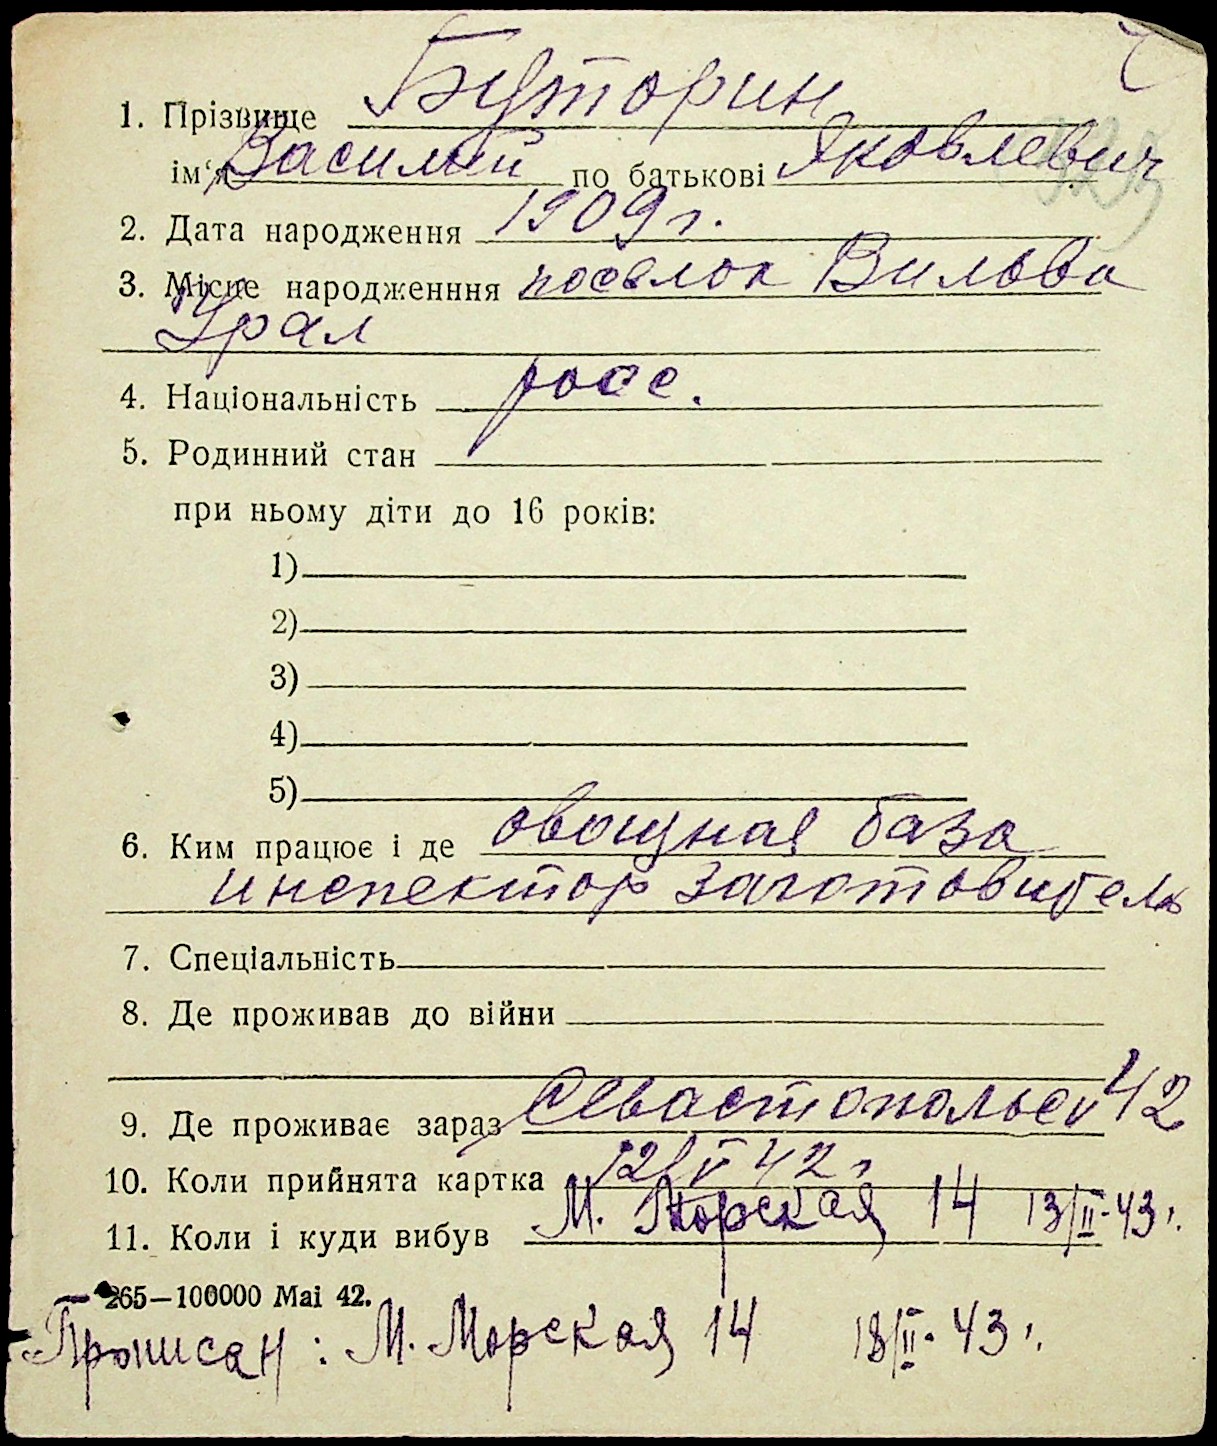 1. Прізвище Буторин
ім'я Василий по батькові Яковлевич
2. Дата народження 1909 г.
3. Місце народженння поселок Вильва
Урал
4. Національність росс.
5. Родинний стан
при ньому діти до 16 років:
1)
2)
3)
4)
5)
6. Ким працює і де овощная база
инспектор заготовитель
7. Спеціальність
8. Де проживав до війни
9. Де проживає зараз 42
10. Коли прийнята картка 12/V 42 г
11. Коли і куди вибув М. Морская 14 13/II-43 г.
265—100000 Mai 42.
Прописан: М. Морская 14 18/II-43 г.